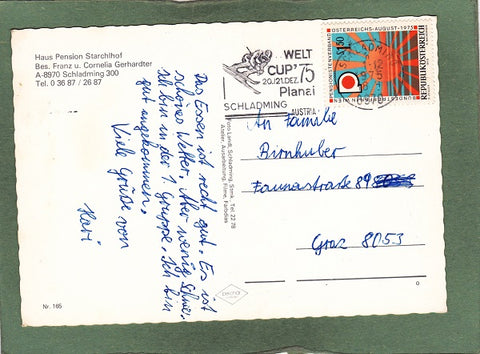 Haus Pension Starchlhof
Bes. Franz u. Cornelia Gerhardter
A-8970 Schladming 300
Tel. 0 36 87 / 26 87
Das Essen ist recht gut. Es ist
schönes Wetter. Aber wenig Schnee.
Ich bin in der 1 Gruppe. Ich bin
gut angekommen.
Viele Grüße von
Nr. 165
WELT
CUP'75
20./21.DEZ.
Planai
SCHLADMING
AUSTRIA
PENSIONISTENVERBAND ÖSTERREICHS-AUGUST-1975
1.50
REPUBLIK ÖSTERREICH
An Familie
Birnhuber
Faunastraße 89
Graz 8053
0